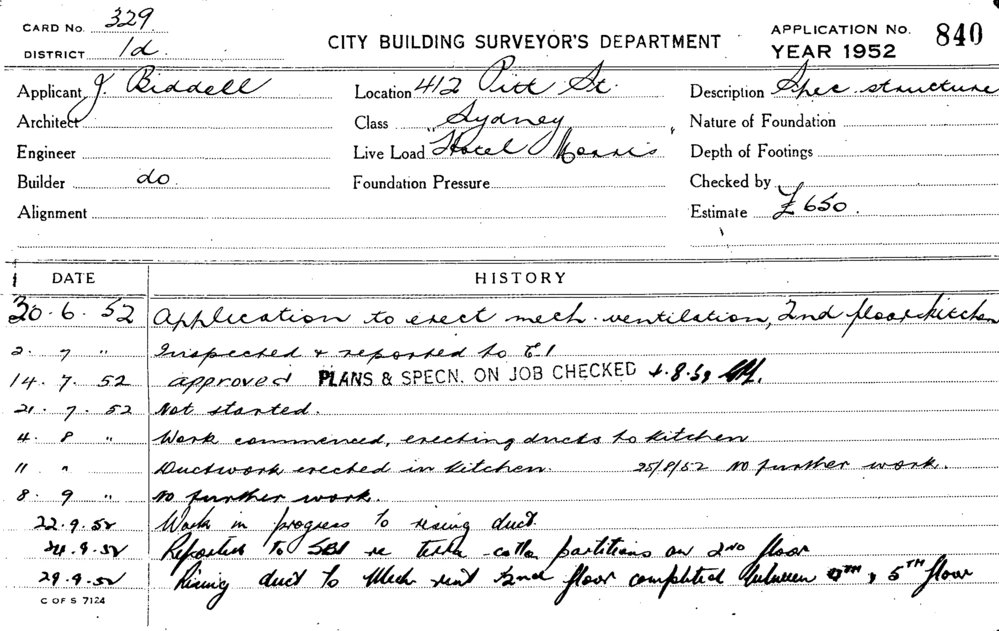 CARD No. 329
DISTRICT 1d.
CITY BUILDING SURVEYOR'S DEPARTMENT
APPLICATION No. 840
YEAR 1952
Applicant J. Biddell
Location 412 Pitt St.
Description Spec. structure
Architect
Class Sydney
Nature of Foundation
Engineer
Live Load "Hotel Morris"
Depth of Footings
Builder do.
Foundation Pressure
Checked by
Alignment
Estimate £650.
DATE HISTORY
30.6.52 Application to erect mech. ventilation, 2nd floor kitchen
2. 7 " Inspected & reported to E1
14.7.52 approved PLANS & SPECN. ON JOB CHECKED 4.8.52
21.7.52 Not started.
4. 8 " Work commenced, erecting ducts to kitchen
11 " Ductwork erected in kitchen. 25/8/52 No further work.
8. 9 " No further work.
22.9.52 Work in progress to rising duct.
24.9.52 Reported to SBI re terra-cotta partitions on 2ND floor
29.9.52 Rising duct to Mech vent 2nd floor completed between 4TH & 5TH floor
C OF S 7124